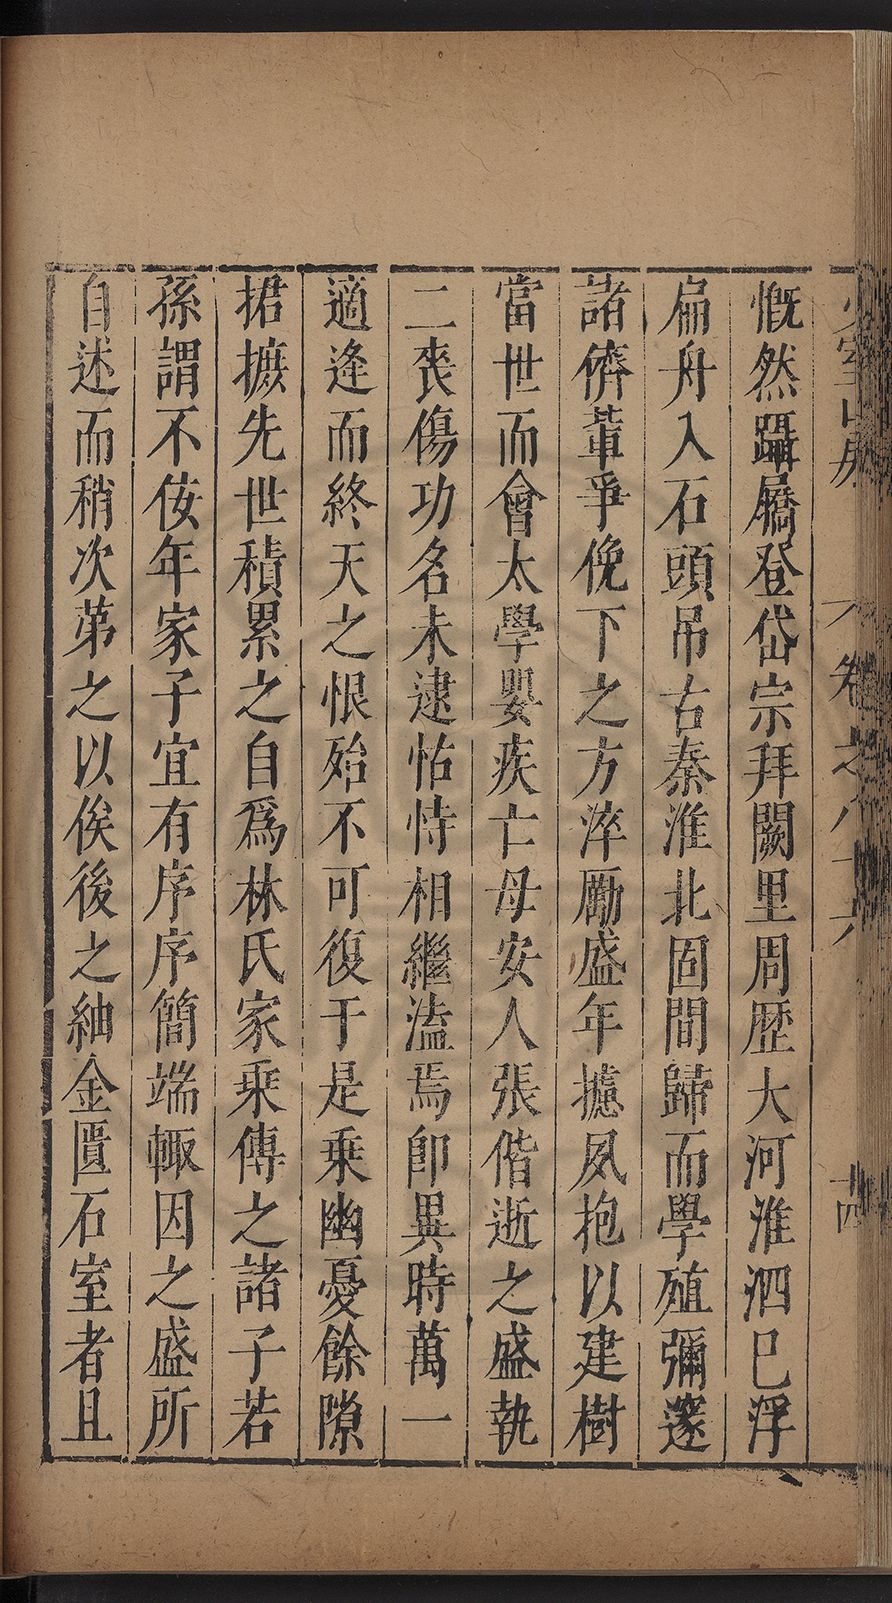 少室山房 卷之八十六 十四
慨然躡屩登岱宗拜闕里周歷大河淮泗已浮
扁舟入石頭吊古秦淮北固間歸而學殖彌邃
諸儕輩爭俛下之方淬勵盛年攄夙抱以建樹
當世而會太學嬰疾亡母安人張偕逝之盛執
二喪傷功名未逮怙恃相繼溘焉卽異時萬一
適逢而終天之恨殆不可復于是乗幽憂餘隙
捃摭先世積累之自爲林氏家乗傳之諸子若
孫謂不佞年家子宜有序序簡端輙因之盛所
自述而稍次苐之以俟後之紬金匱石室者且